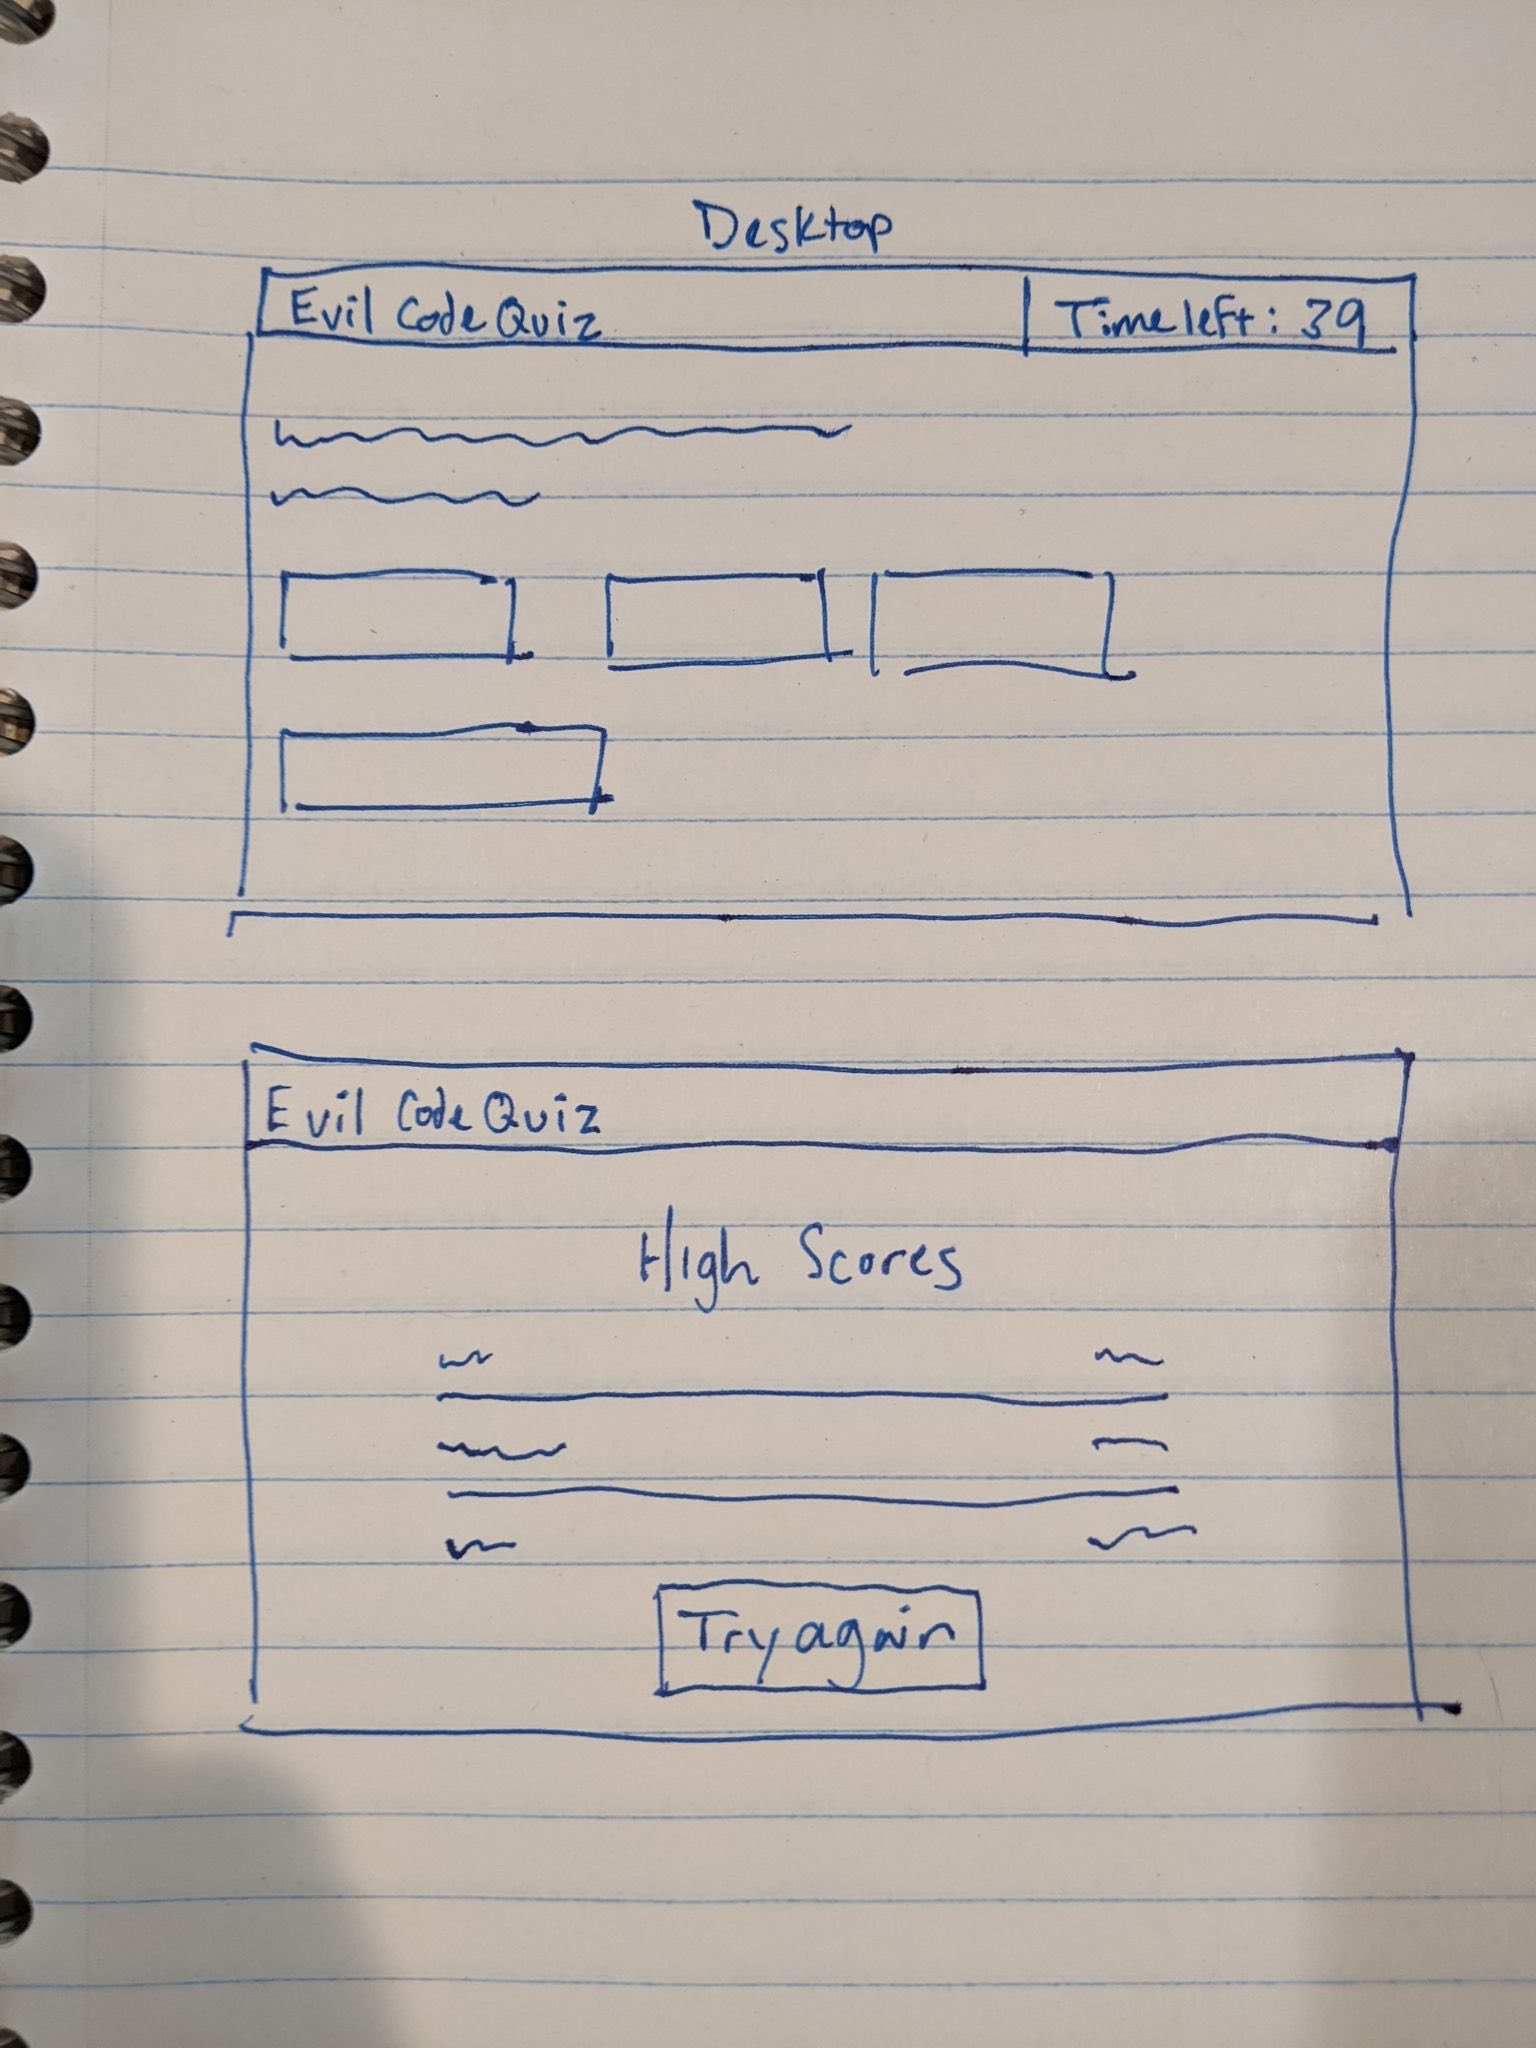 Desktop
Evil Code Quiz
Time left: 39
Evil Code Quiz
High Scores
Try again